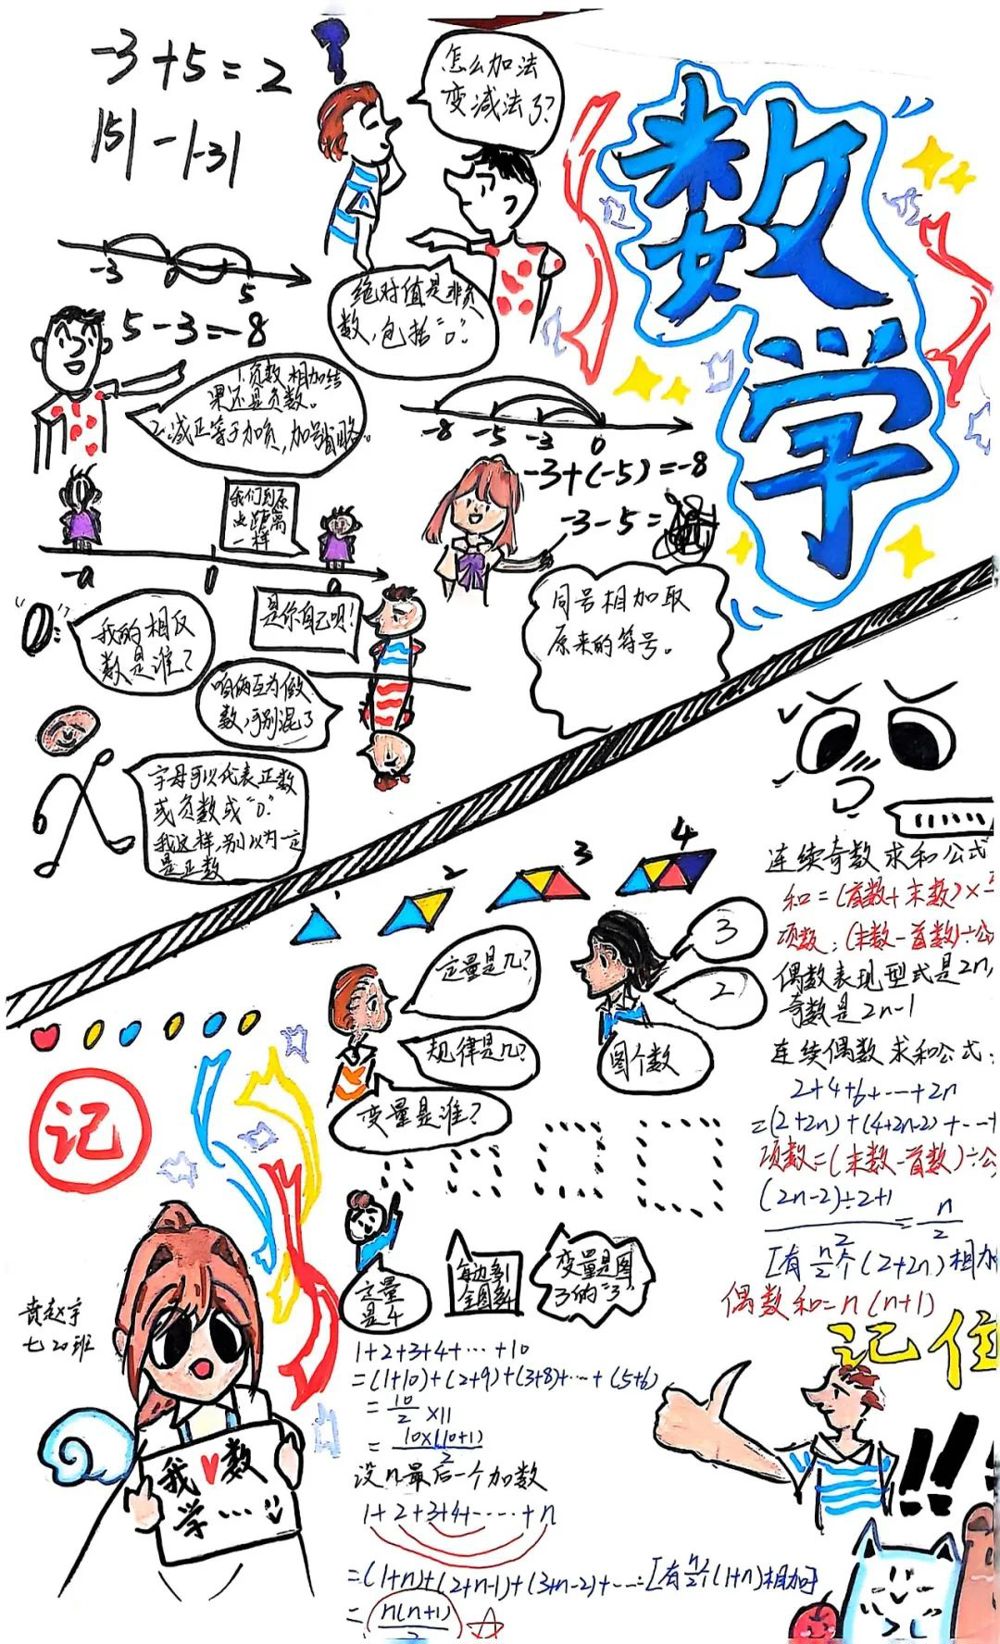 -3+5=2
|5|-|-3|
怎么加法
变减法了?
数
学
-3 0 5
绝对值是非负
数,包括"0".
5-3=-8
1.负数相加结
果还是负数。
2.减正等于加负,加号省略。
-8 -5 -3 0
-3+(-5)=-8
-3-5=
我们到原
点距离
一样
-a 0 a
同号相加取
原来的符号。
"0":
我的相反
数是谁?
是你自己呗!
咱俩互为倒
数,可别混了
字母可以代表正数
或负数或"0".
我这样,别以为一定
是正数
1 2 3 4
连续奇数求和公式
和=(首数+末数)×
项数:(末数-首数)÷公
偶数表现型式是2n,
奇数是2n-1
连续偶数求和公式:
2+4+6+……+2n
=(2+2n)+(4+2n-2)+……+
项数=(末数-首数)÷公
(2n-2)÷2+1
2
=n/2
[有n/2个(2+2n)相加
偶数和=n(n+1)
定量是几?
规律是几?
变量是谁?
3
2
图个数
记
定量
是4
每边多1
全图多4
变量是图
3的"3"
黄赵宇
七20班
我♥数
学…
1+2+3+4+…+10
=(1+10)+(2+9)+(3+8)+…+(5+6)
=10/2×11
=10×(10+1)/2
没n最后一个加数
1+2+3+4+……+n
=(1+n)+(2+n-1)+(3+n-2)+……=[有n/2个(1+n)相加]
=n(n+1)/2
记住
!!